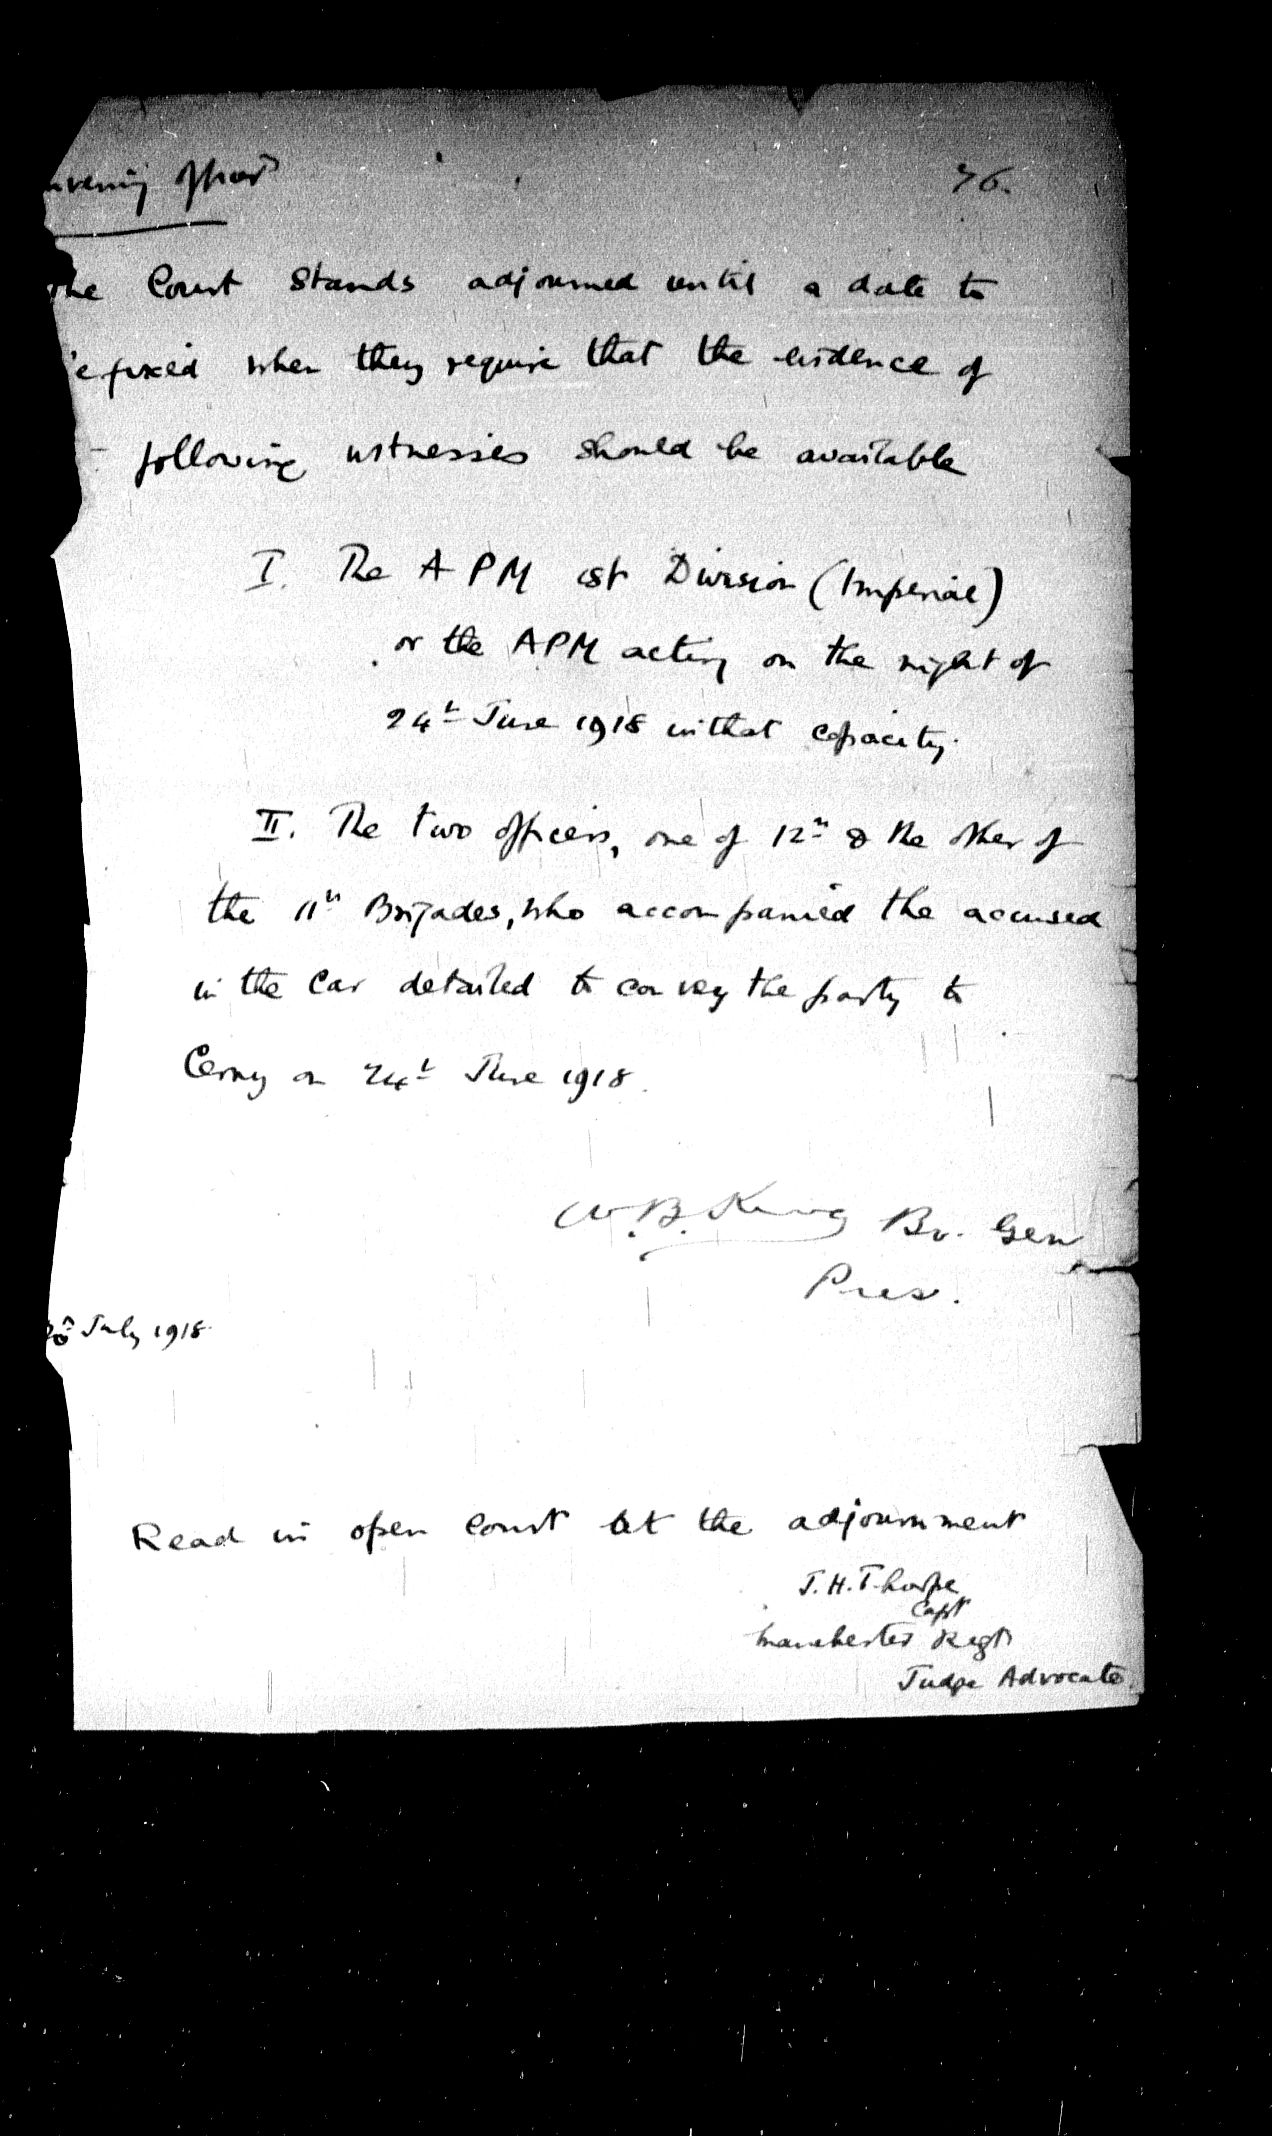 nvening Officer
76.
The Court stands adjourned until a date to
e fixed when they require that the evidence of
following witnesses should be available
I. The A P M 1st Division (Imperial)
or the APM acting on the night of
24th June 1918 in that capacity.
II. The two officers, one of 12th & the other of
the 11th Brigades, who accompanied the accused
in the Car detailed to convey the party to
Cerny on 24th June 1918.
W.B. King Br. Gen
Pres.
July 1918
Read in open Court at the adjournment
J.H. Thorpe
Capt
Manchester Regt
Judge Advocate